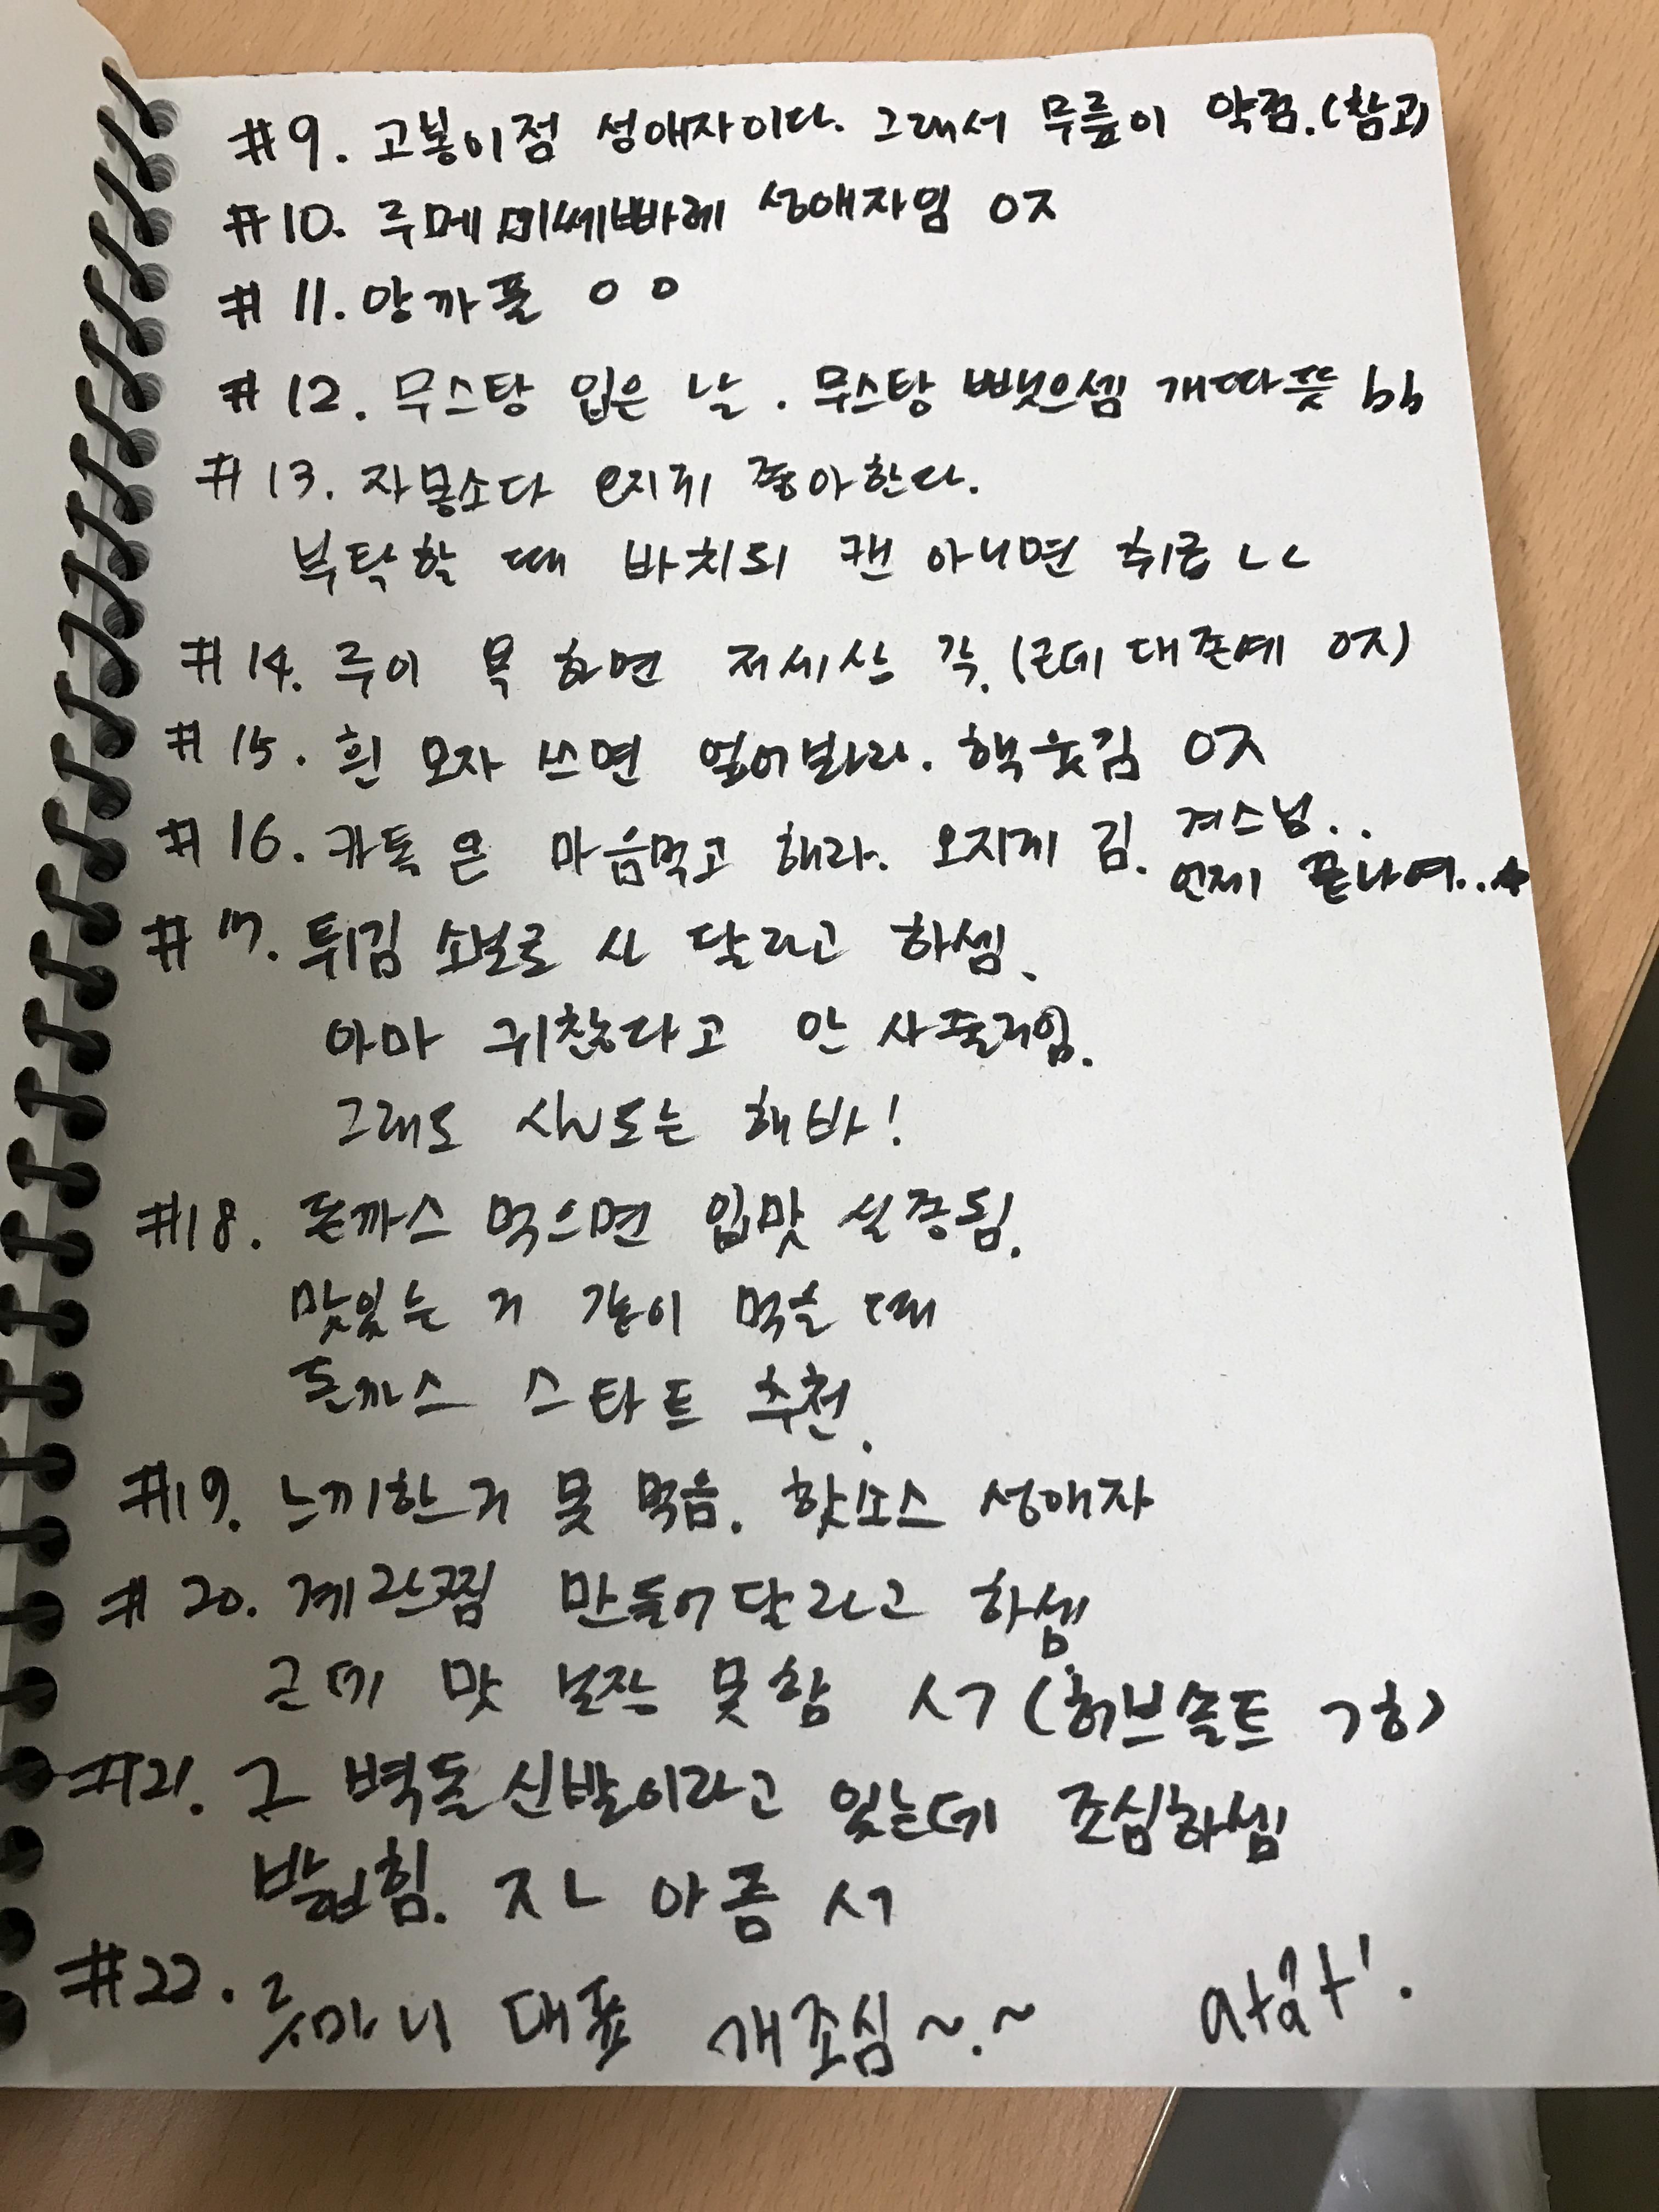 #9. 고봉이점 성애자이다. 그래서 무릎이 약점.(참고)
#10. 루메 미쎄빠레 성애자임 ㅇㅈ
#11. 앙까풀 ㅇㅇ
#12. 무스탕 입은 날. 무스탕 뺏으셈 개따뜻 bb
#13. 자몽소다 오지게 좋아한다.
부탁할 때 바치되 캔 아니면 취급 ㄴㄴ
#14. 루이 욕 하면 저세상 각.(근데 대존예 ㅇㅈ)
#15. 흰 모자 쓰면 얼어봐라. 핵웃김 ㅇㅈ
#16. 카톡은 마음먹고 해라. 오지게 김. 겨스님..
언제 끝나여..
#17. 튀김 소보로 사 달라고 하셈.
아마 귀찮다고 안 사줄거임.
그래도 시도는 해바!
#18. 돈까스 먹으면 입맛 실종됨.
맛있는 거 같이 먹을 때
돈까스 스타트 추천.
#19. 느끼한거 못 먹음. 핫소스 성애자
#20. 계란찜 만들어달라고 하셈
근데 맛 보장 못함 ㅅㄱ (허브솔트 ㄱㅎ)
#21. 그 벽돌신발이라고 있는데 조심하셈
발 밟힘. ㅈㄴ 아픔 ㅅㄱ
#22. 주마니 대표 개조심~.~